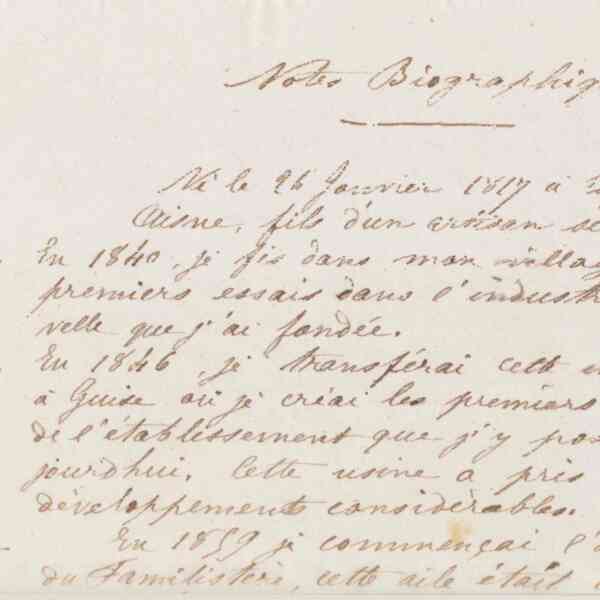 Notes Biographiq
Né le 26 Janvier 1817 à
Aisne, fils d'un artisan se
En 1840, je fis dans mon villag
premiers essais dans l'industr
velle que j'ai fondée.
En 1846, je transférai cette
à Guise où je créai les premiers
de l'établissement que j'y pos
jourdhui. Cette usine a pris
développements considérables.
En 1859 je commençai l'a
du Familistère, cette aile était